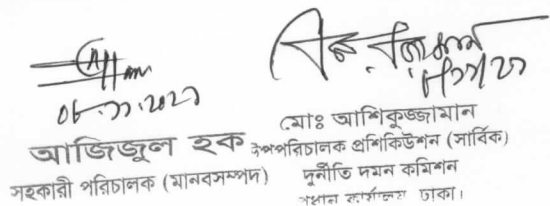 ০৮.১১.২০২১
আজিজুল হক
সহকারী পরিচালক (মানবসম্পদ)
মোঃ আশিকুজ্জামান
উপপরিচালক প্রশিকিউশন (সার্বিক)
দুর্নীতি দমন কমিশন
প্রধান কার্যালয় ঢাকা।